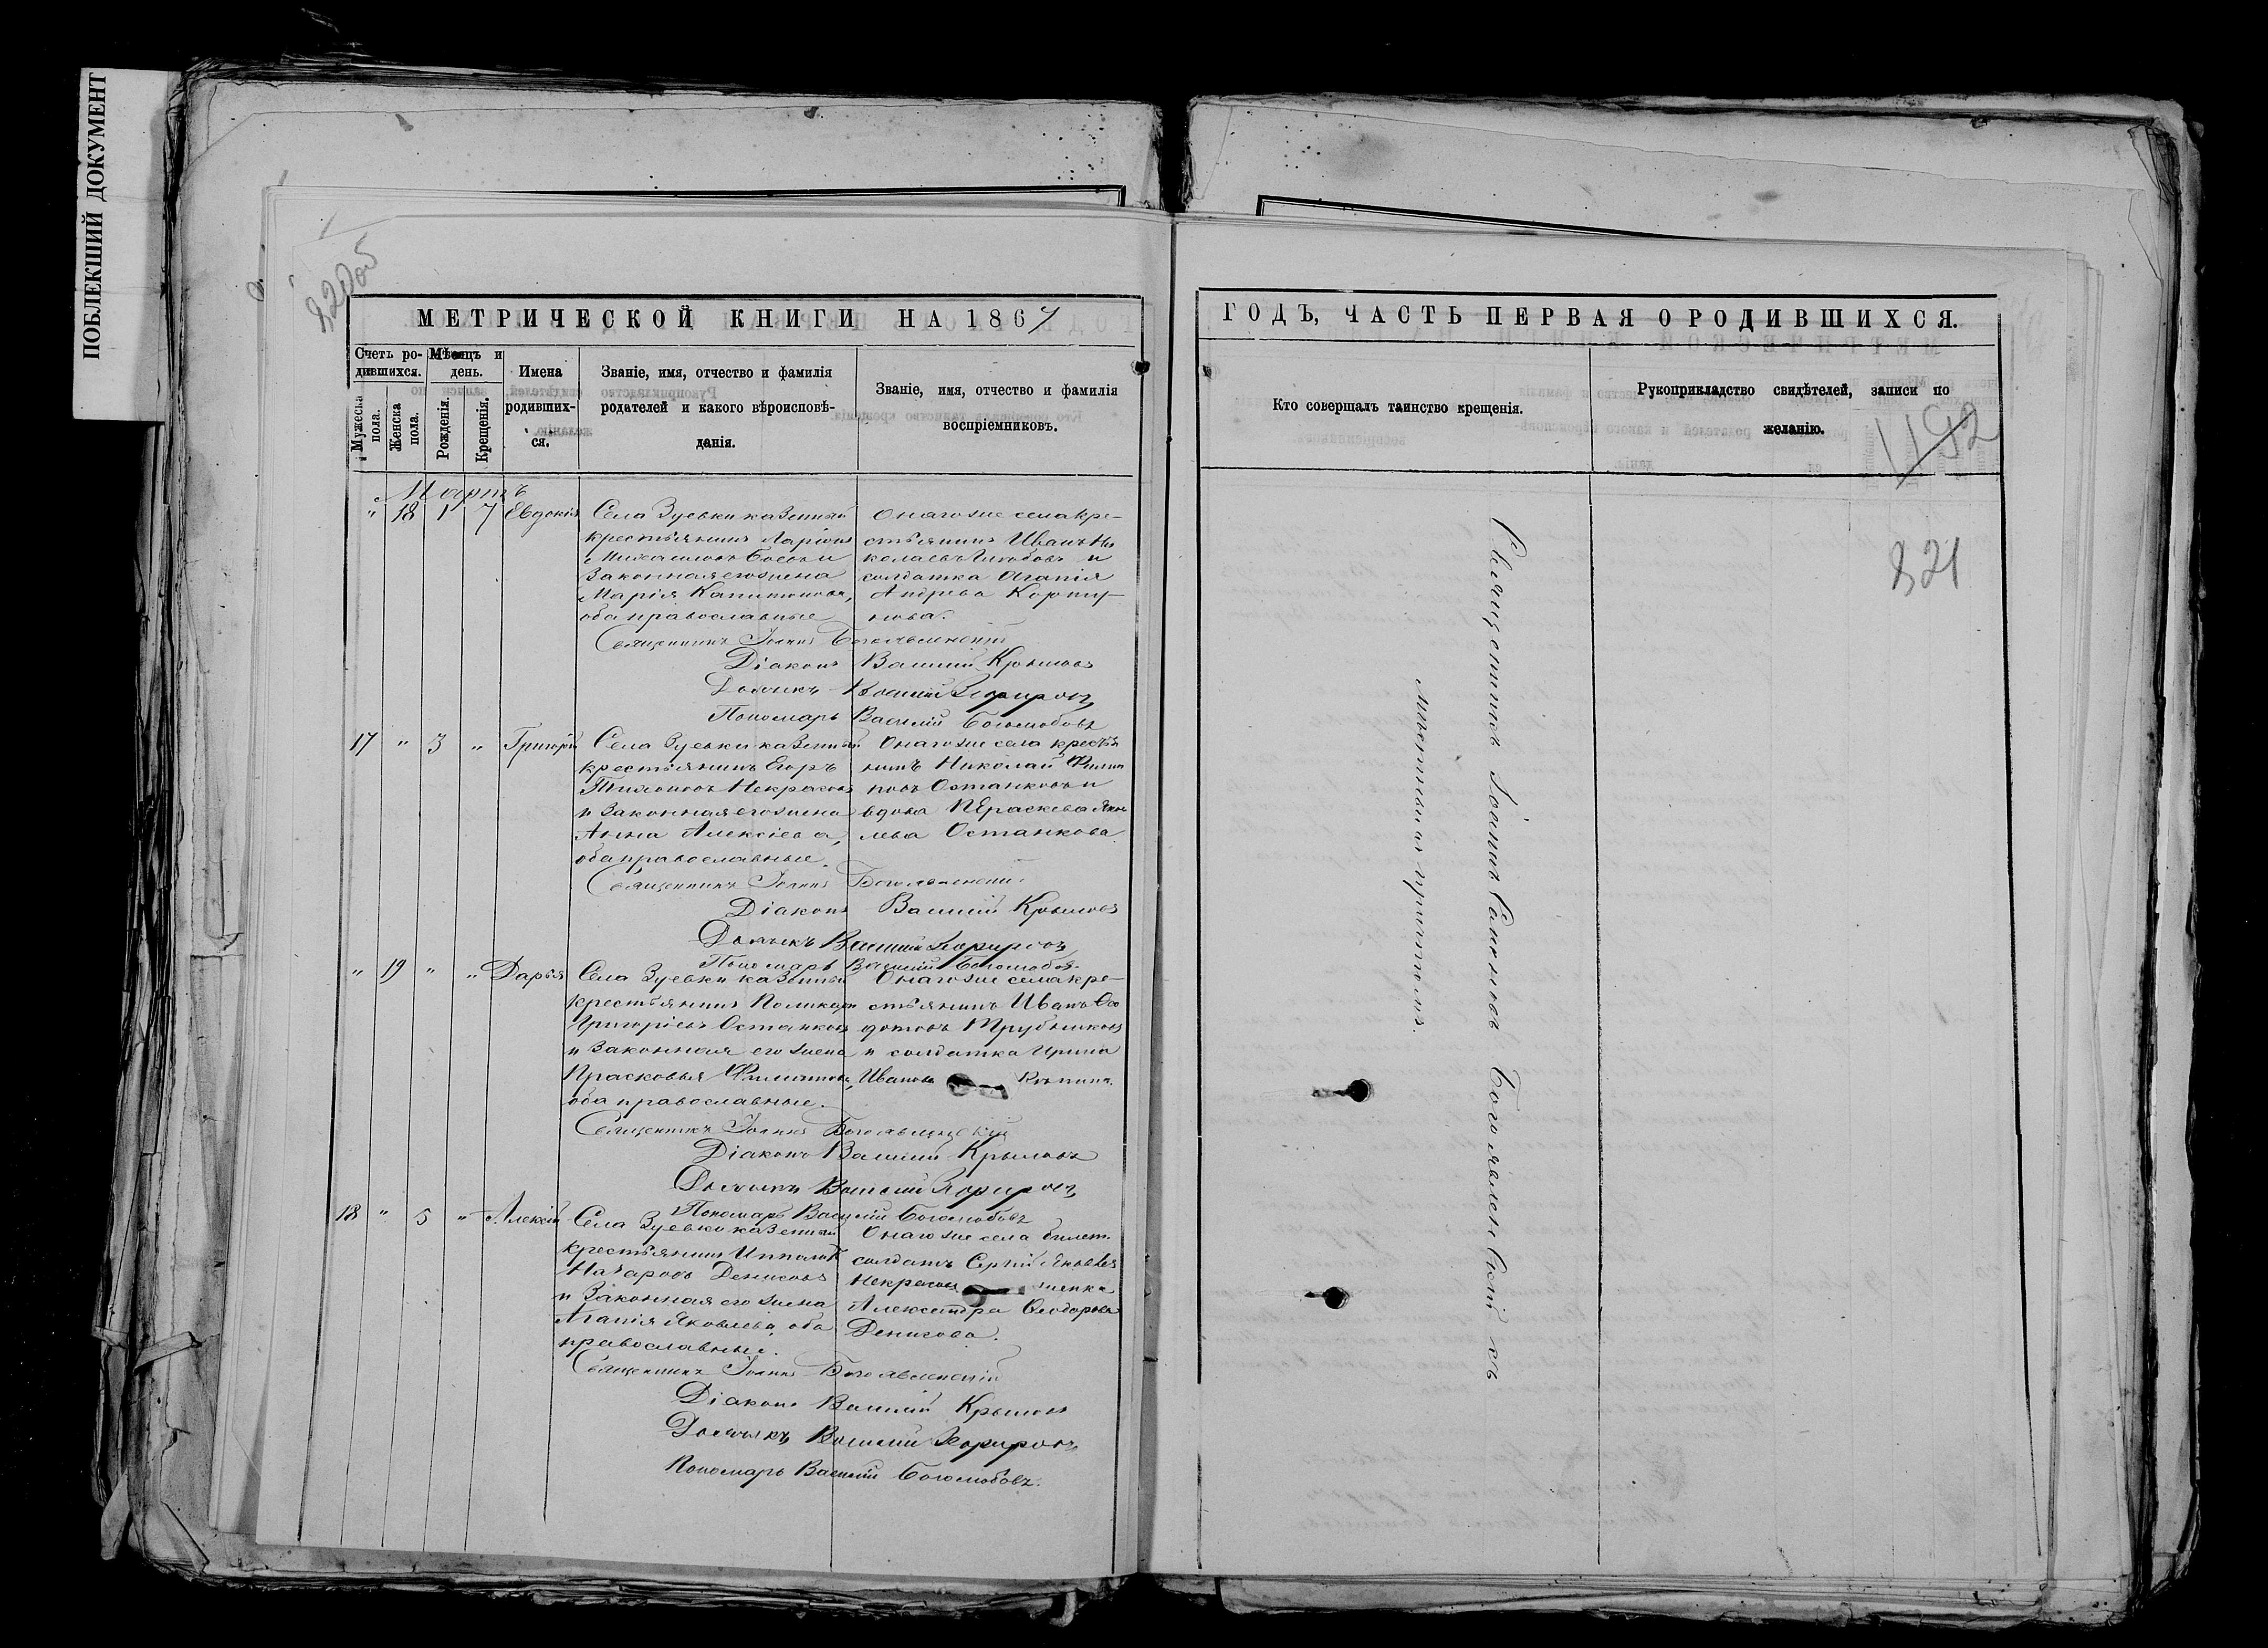 ПОБЛЕКШИЙ ДОКУМЕНТ
820об
МЕТРИЧЕСКОЙ КНИГИ НА 1867
Счетъ ро-
дившихся.
Мѣсяцъ и
день.
Мужеска
пола.
Женска
пола.
Рожденія.
Крещенія.
Имена
родивших-
ся.
Званіе, имя, отчество и фамилія
родателей и какого вѣроисповѣ-
данія.
Званіе, имя, отчество и фамилія
воспріемниковъ.
Мартъ
" 18 1 7 Евдокія
Села Зуевки казенный
крестьянинъ Ларіонъ
Михаиловъ и
законная его жена
Марія Капитонова,
оба православные
Онаго же села кре-
стьянинъ Иванъ Ни
колаевъ и
солдатка Агапія
Андрева Корпу-
нова.
Священникъ Іоаннъ Богоявленскій
Діаконъ Василій Крыловъ
Дьячекъ Василій
Пономарь Василій Боголюбовъ
17 " 3 " Григорій
Села Зуевки казенный
крестьянинъ Егоръ
Тихоновъ Некрасовъ
и законная его жена
Анна Алексіева,
оба православные.
Онаго же села крестья
нинъ Николай Филип
повъ Останковъ и
вдова Яков
лева Останкова
Священникъ Іоаннъ Богоявленскій
Діаконъ Василій Крыловъ
Дьячекъ Василій
Пономарь Василій Боголюбовъ
" 19 " " Дарья
Села Зуевки казенный
крестьянинъ Поликарпъ
Григорьевъ Останковъ
и законная его жена
Прасковья Филипова,
оба православные.
Онаго же села кре-
стьянинъ Иванъ Ѳео
дотовъ Трубниковъ
и солдатка Ирина
Иванова
Священникъ Іоаннъ Богоявленскій
Діаконъ Василій Крыловъ
Дьячекъ Василій
Пономарь Василій Боголюбовъ
18 " 5 " Алексій
Села Зуевки казенный
крестьянинъ Ипполитъ
Назаровъ Денисовъ
и законная его жена
Агапія Яковлева, оба
православные.
Онаго же села билет.
солдатъ Сергій Яковлевъ
Некрасовъ
Александра Ѳеодорова
Денисова.
Священникъ Іоаннъ Богоявленскій
Діаконъ Василій Крыловъ
Дьячекъ Василій
Пономарь Василій Боголюбовъ.
ГОДЪ, ЧАСТЬ ПЕРВАЯ О РОДИВШИХСЯ.
Кто совершалъ таинство крещенія.
Рукоприкладство свидѣтелей, записи по
желанію.
1192
821
Священникъ Іоаннъ Богоявленскій съ
причтомъ.